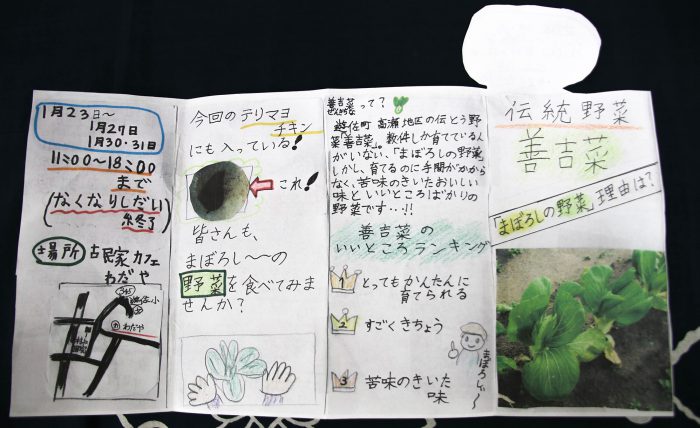 1月23日〜
1月27日
1月30・31日
11:00〜18:00
まで
(なくなりしだい
終了)
場所 古民家カフェ
わだや
わだや
今回のテリマヨ
チキン
にも入っている!
これ!
皆さんも、
まぼろし〜〜の
野菜を食べてみま
せんか?
善吉菜って?
ぜんきちな
遊佐町 高瀬地区の伝とう野
菜「善吉菜」。数件しか育てている人
がいない、「まぼろしの野菜」
しかし、育てるのに手間がかから
なく、苦味のきいたおいしい
味といいところばかりの
野菜です…!!
善吉菜の
いいところランキング
1 とってもかんたんに
育てられる
2 すごくきちょう
3 苦味のきいた
味
まぼろしぃ〜
伝統野菜
善吉菜
「まぼろしの野菜」理由は?